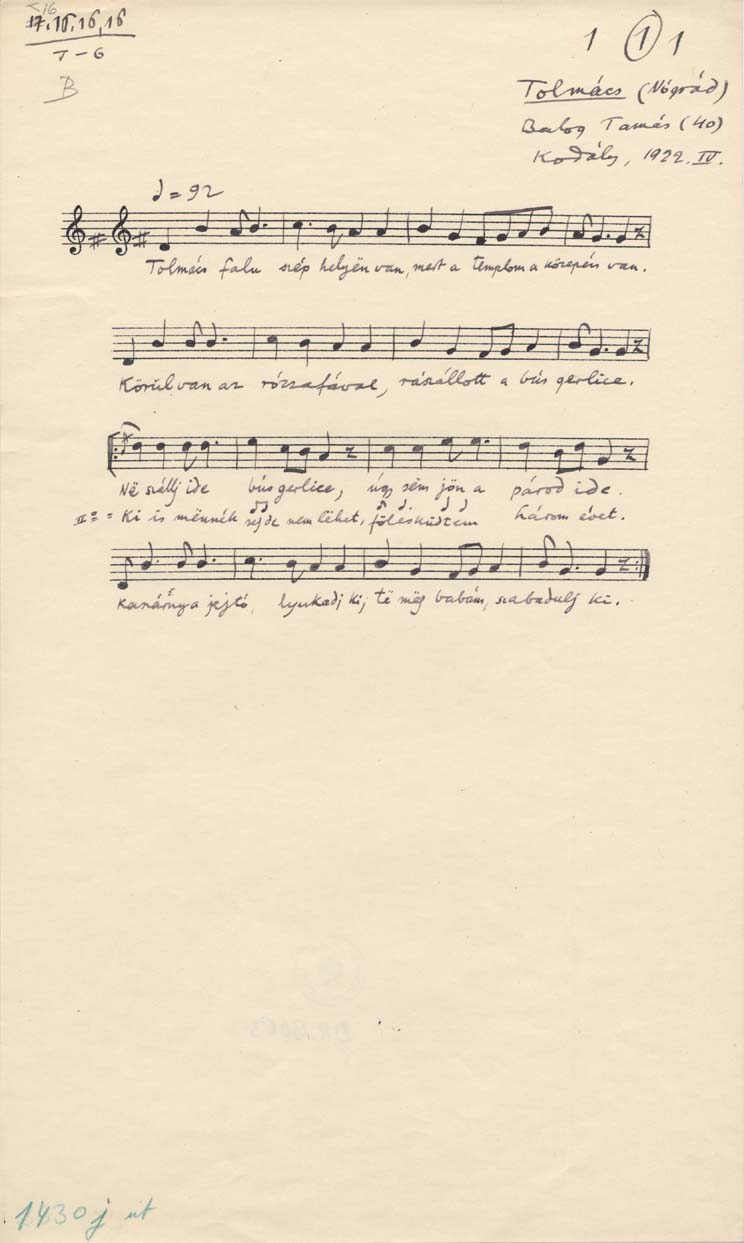 T-6
B
1 1 1
Tolmács (Nógrád)
Balog Tamás (40)
Kodály, 1922. IV.
= 92
Tolmács falu szép helyjën van, mert a templom a közepén van.
Körül van az rózsafával, rászállott a bús gerlice.
Në szállj ide bús gerlice, úgy sëm jön a párod ide.
Ki is mënnék sejde nem lëhet, fölésküdtem három évet.
kaszárnya jejtó, lyukadj ki, të mëg babám, szabadulj ki.
1430j ut